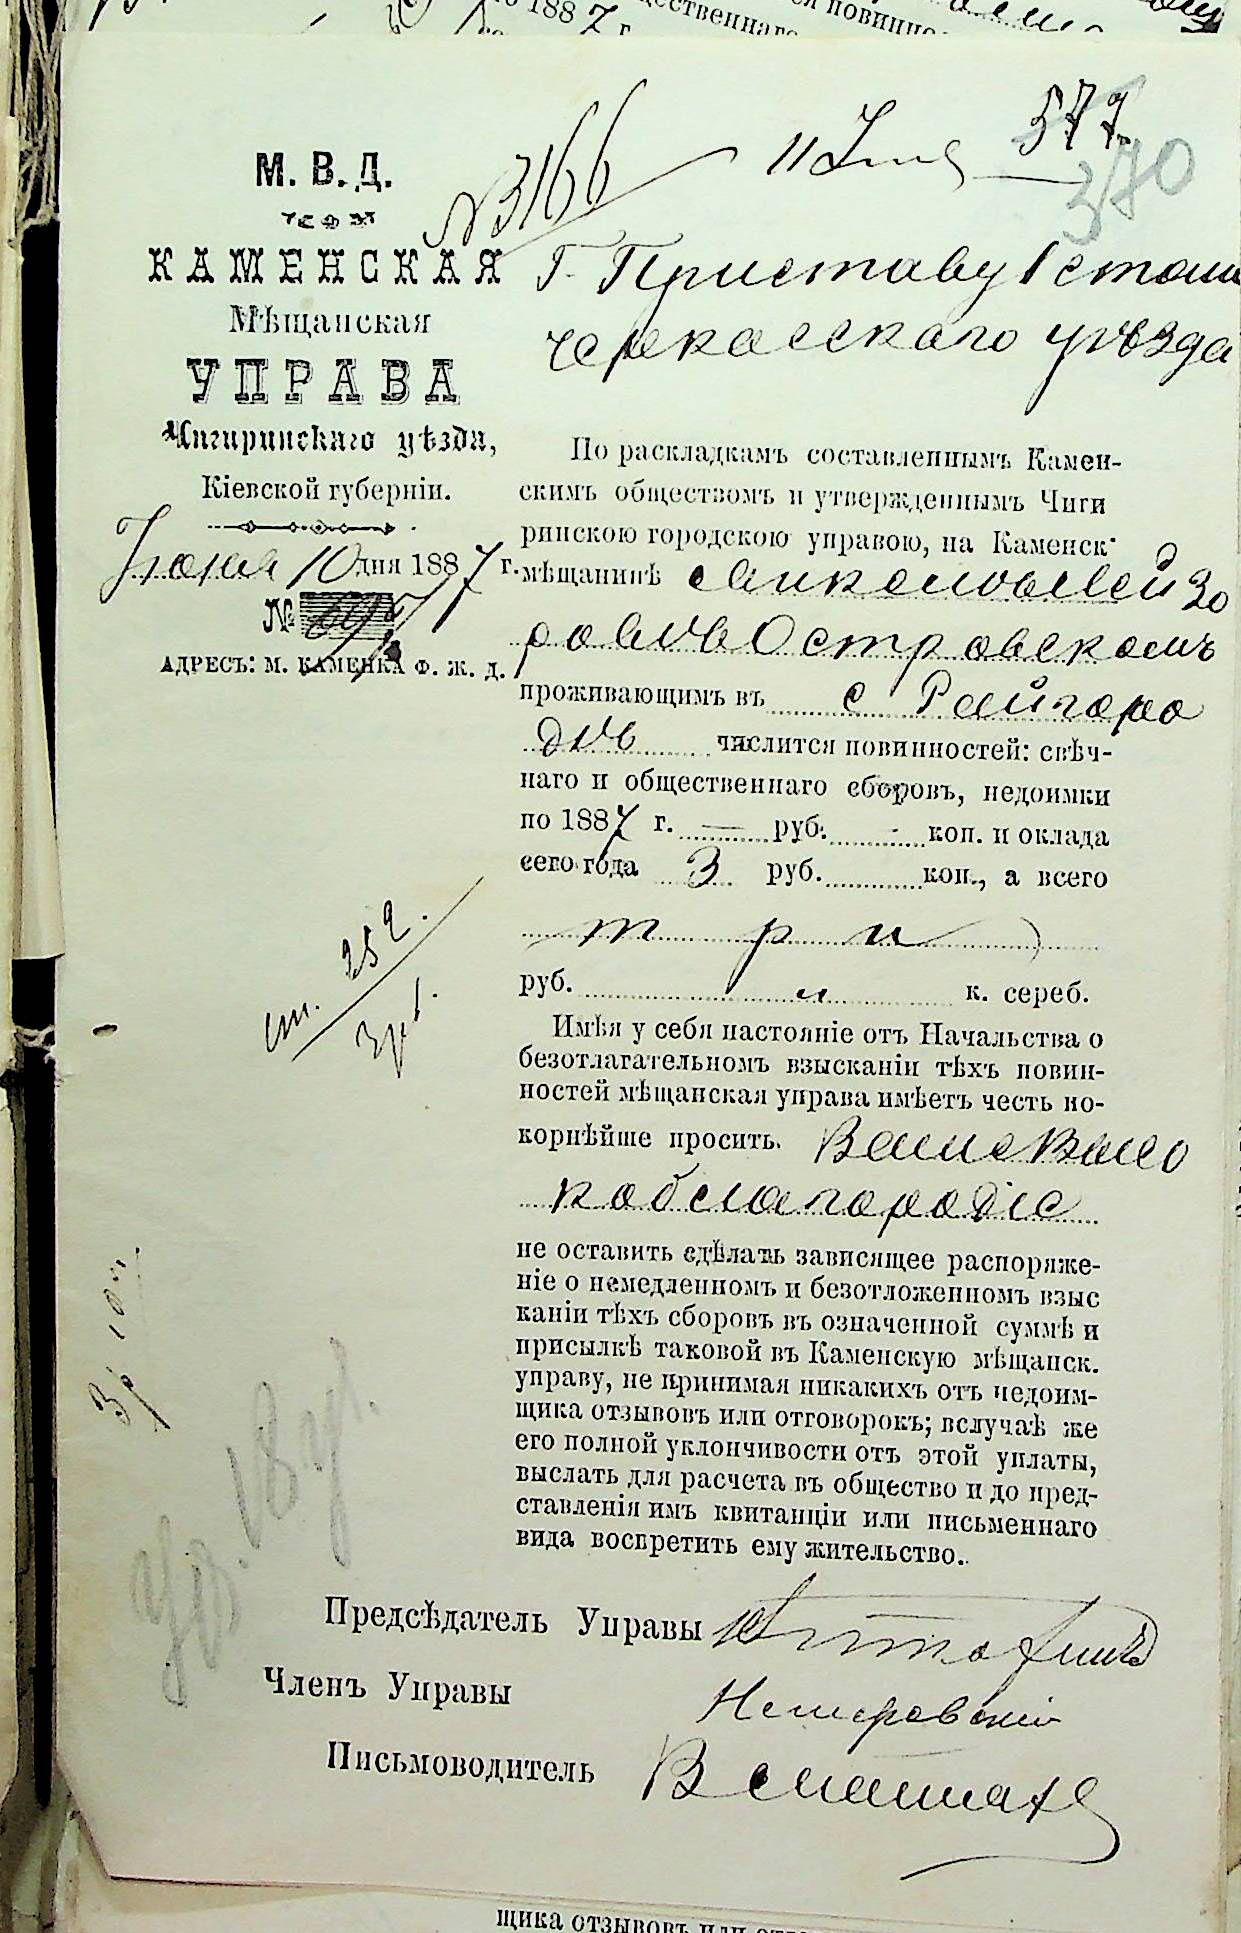 по 1887 г.
№ 3166
11 Іюня
377
370
М. В. Д.
КАМЕНСКАЯ
Мѣщанская
УПРАВА
Чигиринскаго уѣзда,
Кіевской губерніи.
Іюня 10 дня 1887 г.
№
АДРЕСЪ: М. КАМЕНКА Ф. Ж. Д.
Г. Приставу 1 стана
Черкасскаго уѣзда
По раскладкамъ составленнымъ Камен-
скимъ обществомъ и утвержденнымъ Чиги
ринскою городскою управою, на Каменск.
мѣщанинѣ
Островскомъ
проживающимъ въ с Райгоро
дѣ числится повинностей: свѣч-
наго и общественнаго сборовъ, недоимки
по 1887 г. — руб. - коп. и оклада
сего года 3 руб. коп., а всего
три
руб. и к. сереб.
Имѣя у себя настояніе отъ Начальства о
безотлагательномъ взысканіи тѣхъ повин-
ностей мѣщанская управа имѣетъ честь по-
корнѣйше просить. Ваше Высо
коблагородіе
не оставить сдѣлать зависящее распоряже-
ніе о немедленномъ и безотложенномъ взыс
каніи тѣхъ сборовъ въ означенной суммѣ и
присылкѣ таковой въ Каменскую мѣщанск.
управу, не принимая никакихъ отъ недоим-
щика отзывовъ или отговорокъ; вслучаѣ же
его полной уклончивости отъ этой уплаты,
выслать для расчета въ общество и до пред-
ставленія имъ квитанціи или письменнаго
вида воспретить ему жительство.
ст. 252.
3 р.
3 р 10
Предсѣдатель Управы
Членъ Управы
Письмоводитель
щика отзывовъ или